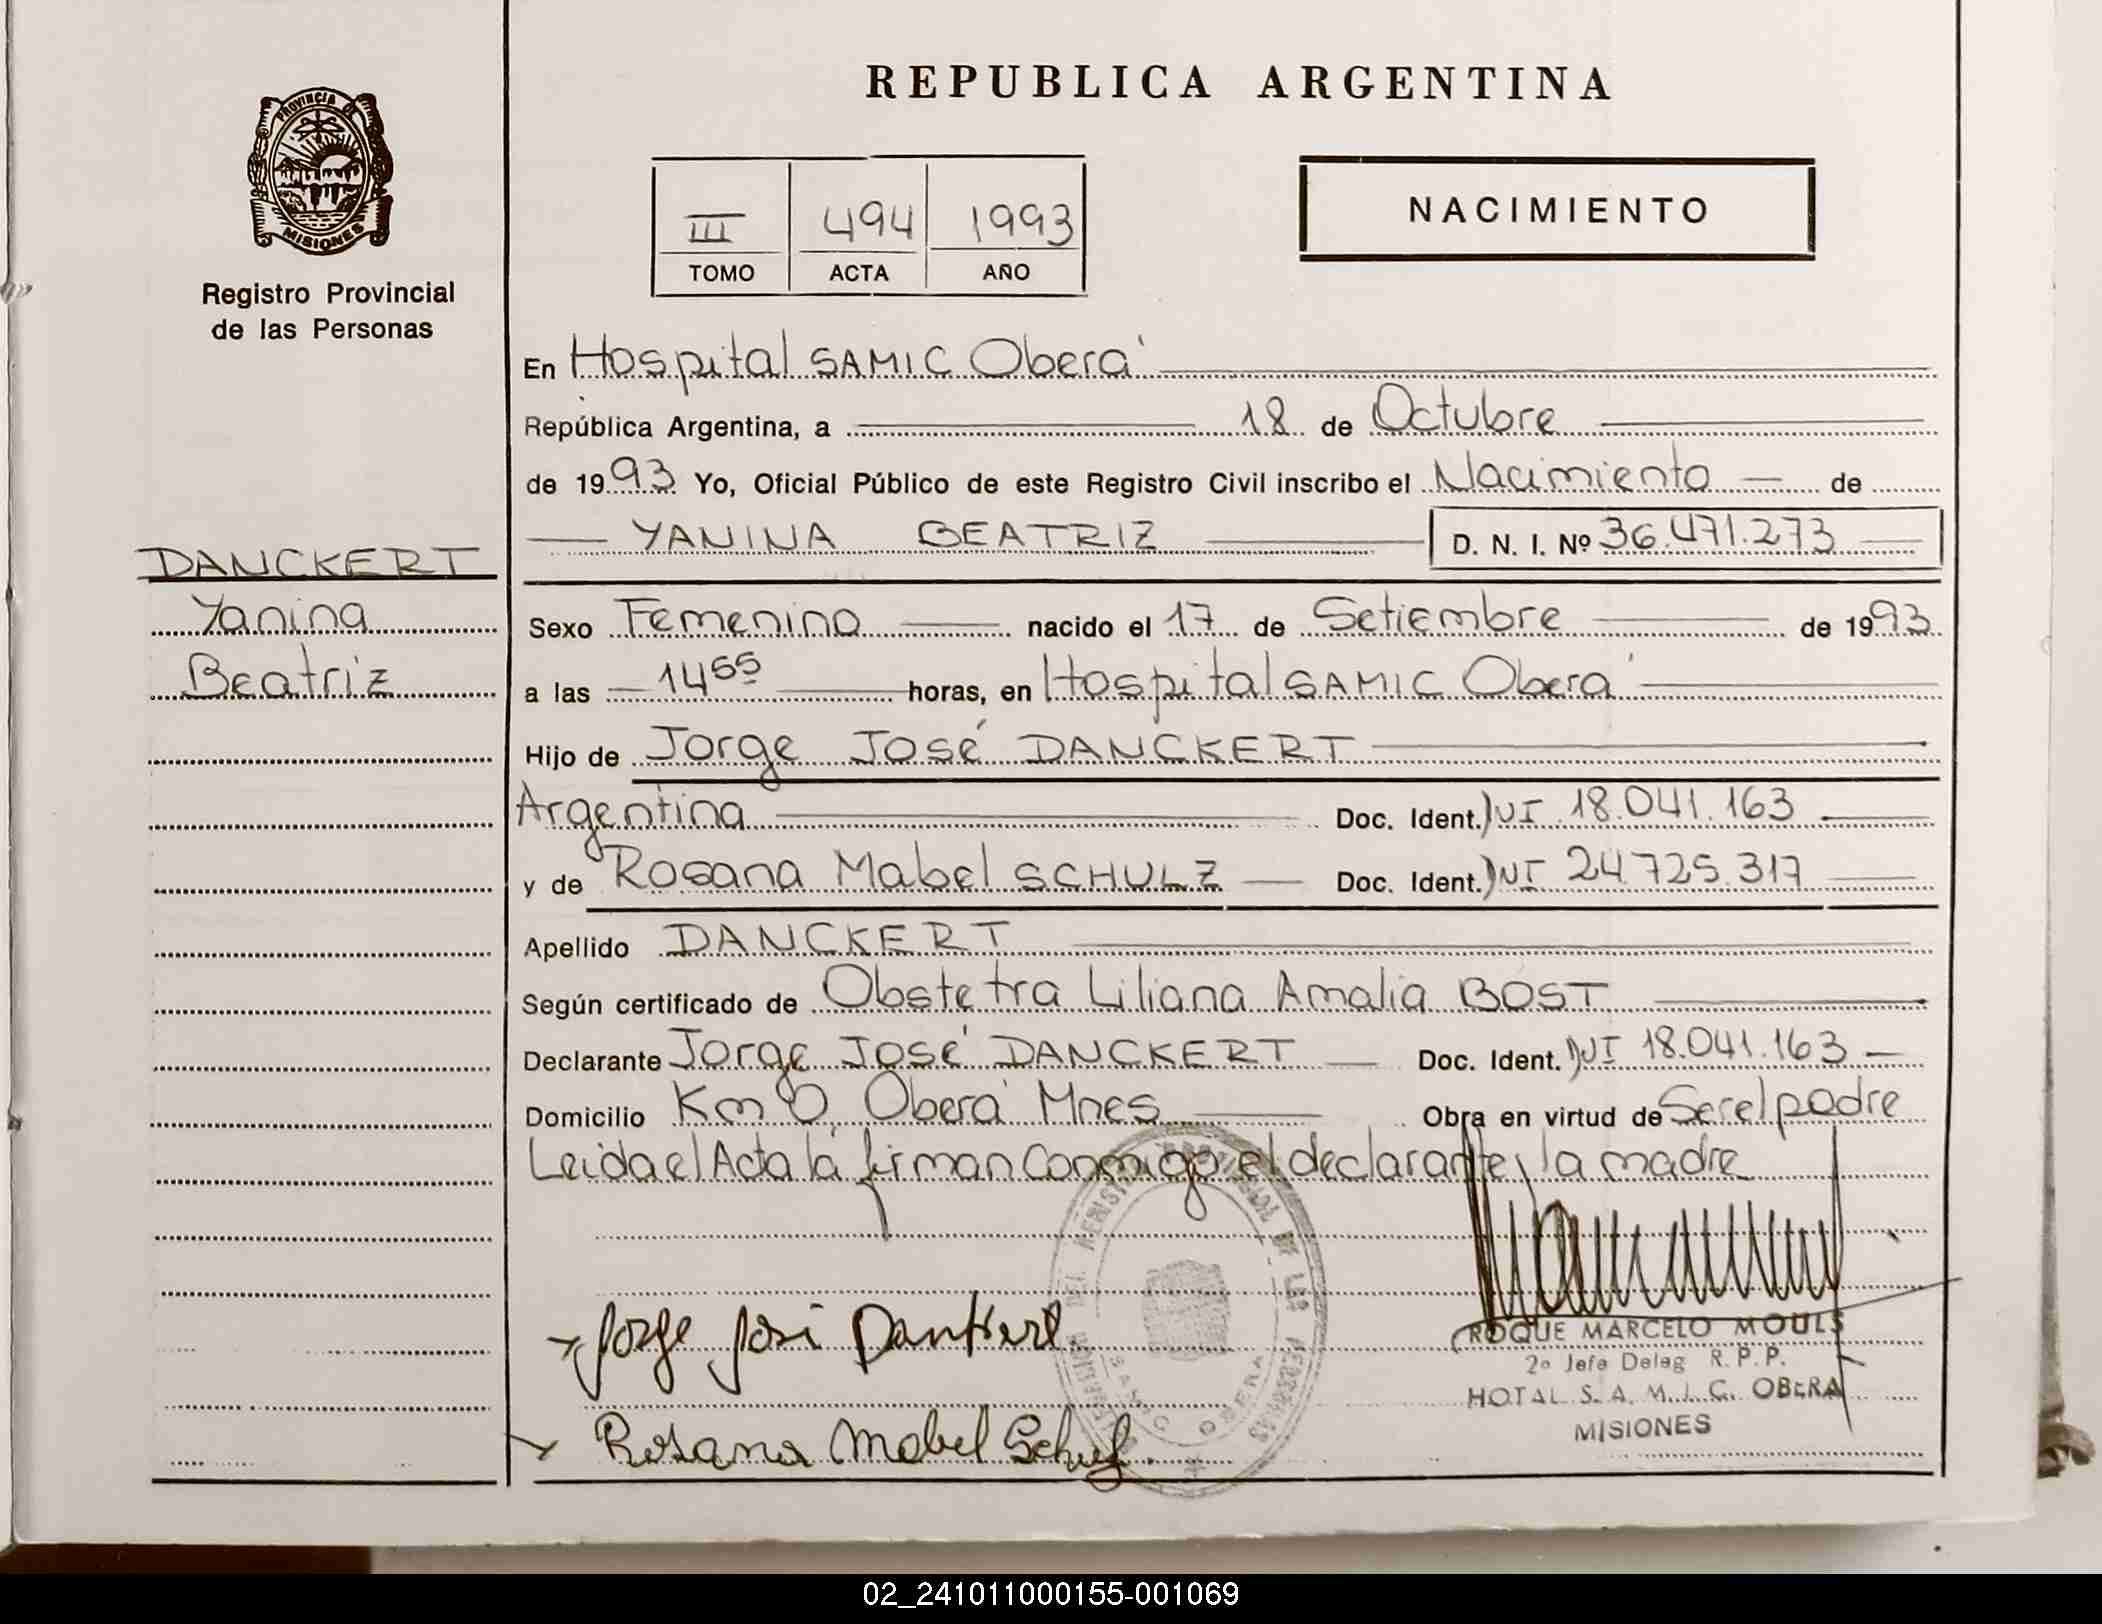 REPUBLICA ARGENTINA
PROVINCIA DE
MISIONES
Registro Provincial
de las Personas
III 494 1993
TOMO ACTA AÑO
NACIMIENTO
En Hospital SAMIC Oberá
República Argentina, a 18 de Octubre
de 1993 Yo, Oficial Público de este Registro Civil inscribo el Nacimiento de
YANINA BEATRIZ D. N. I. Nº 36.471.273
DANCKERT
Yanina
Beatriz
Sexo Femenino nacido el 17 de Setiembre de 1993
a las 14 55 horas, en Hospital SAMIC Oberá
Hijo de Jorge José DANCKERT
Argentina Doc. Ident. DNI 18.041.163
y de Rosana Mabel SCHULZ Doc. Ident. DNI 24725.317
Apellido DANCKERT
Según certificado de Obstetra Liliana Amalia BOST
Declarante Jorge José DANCKERT Doc. Ident. DNI 18.041.163
Domicilio Km 0, Oberá Mnes Obra en virtud de Ser el padre
Leida el Acta la firman Conmigo el declarante y la madre
Jorge José Dankert
Rosana Mabel Schulz.
SAMIC OBERA
ROQUE MARCELO MOULS
2º Jefe Deleg R.P.P.
HOTAL S. A. M. I. C. OBERA
MISIONES
02_241011000155-001069